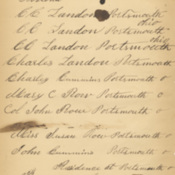 C C Landon Portsmouth
Ohio
C C Landon Portsmouth
Ohio
C C Landon Portsmouth
Charles Landon Portsmouth
Charley Cummins Portsmouth o
Mary C Row Portsmouth o
Col John Row Portsmouth
Mrs Susan Row Portsmouth o
John Cummins Portsmouth o
Residence at Portsmouth o